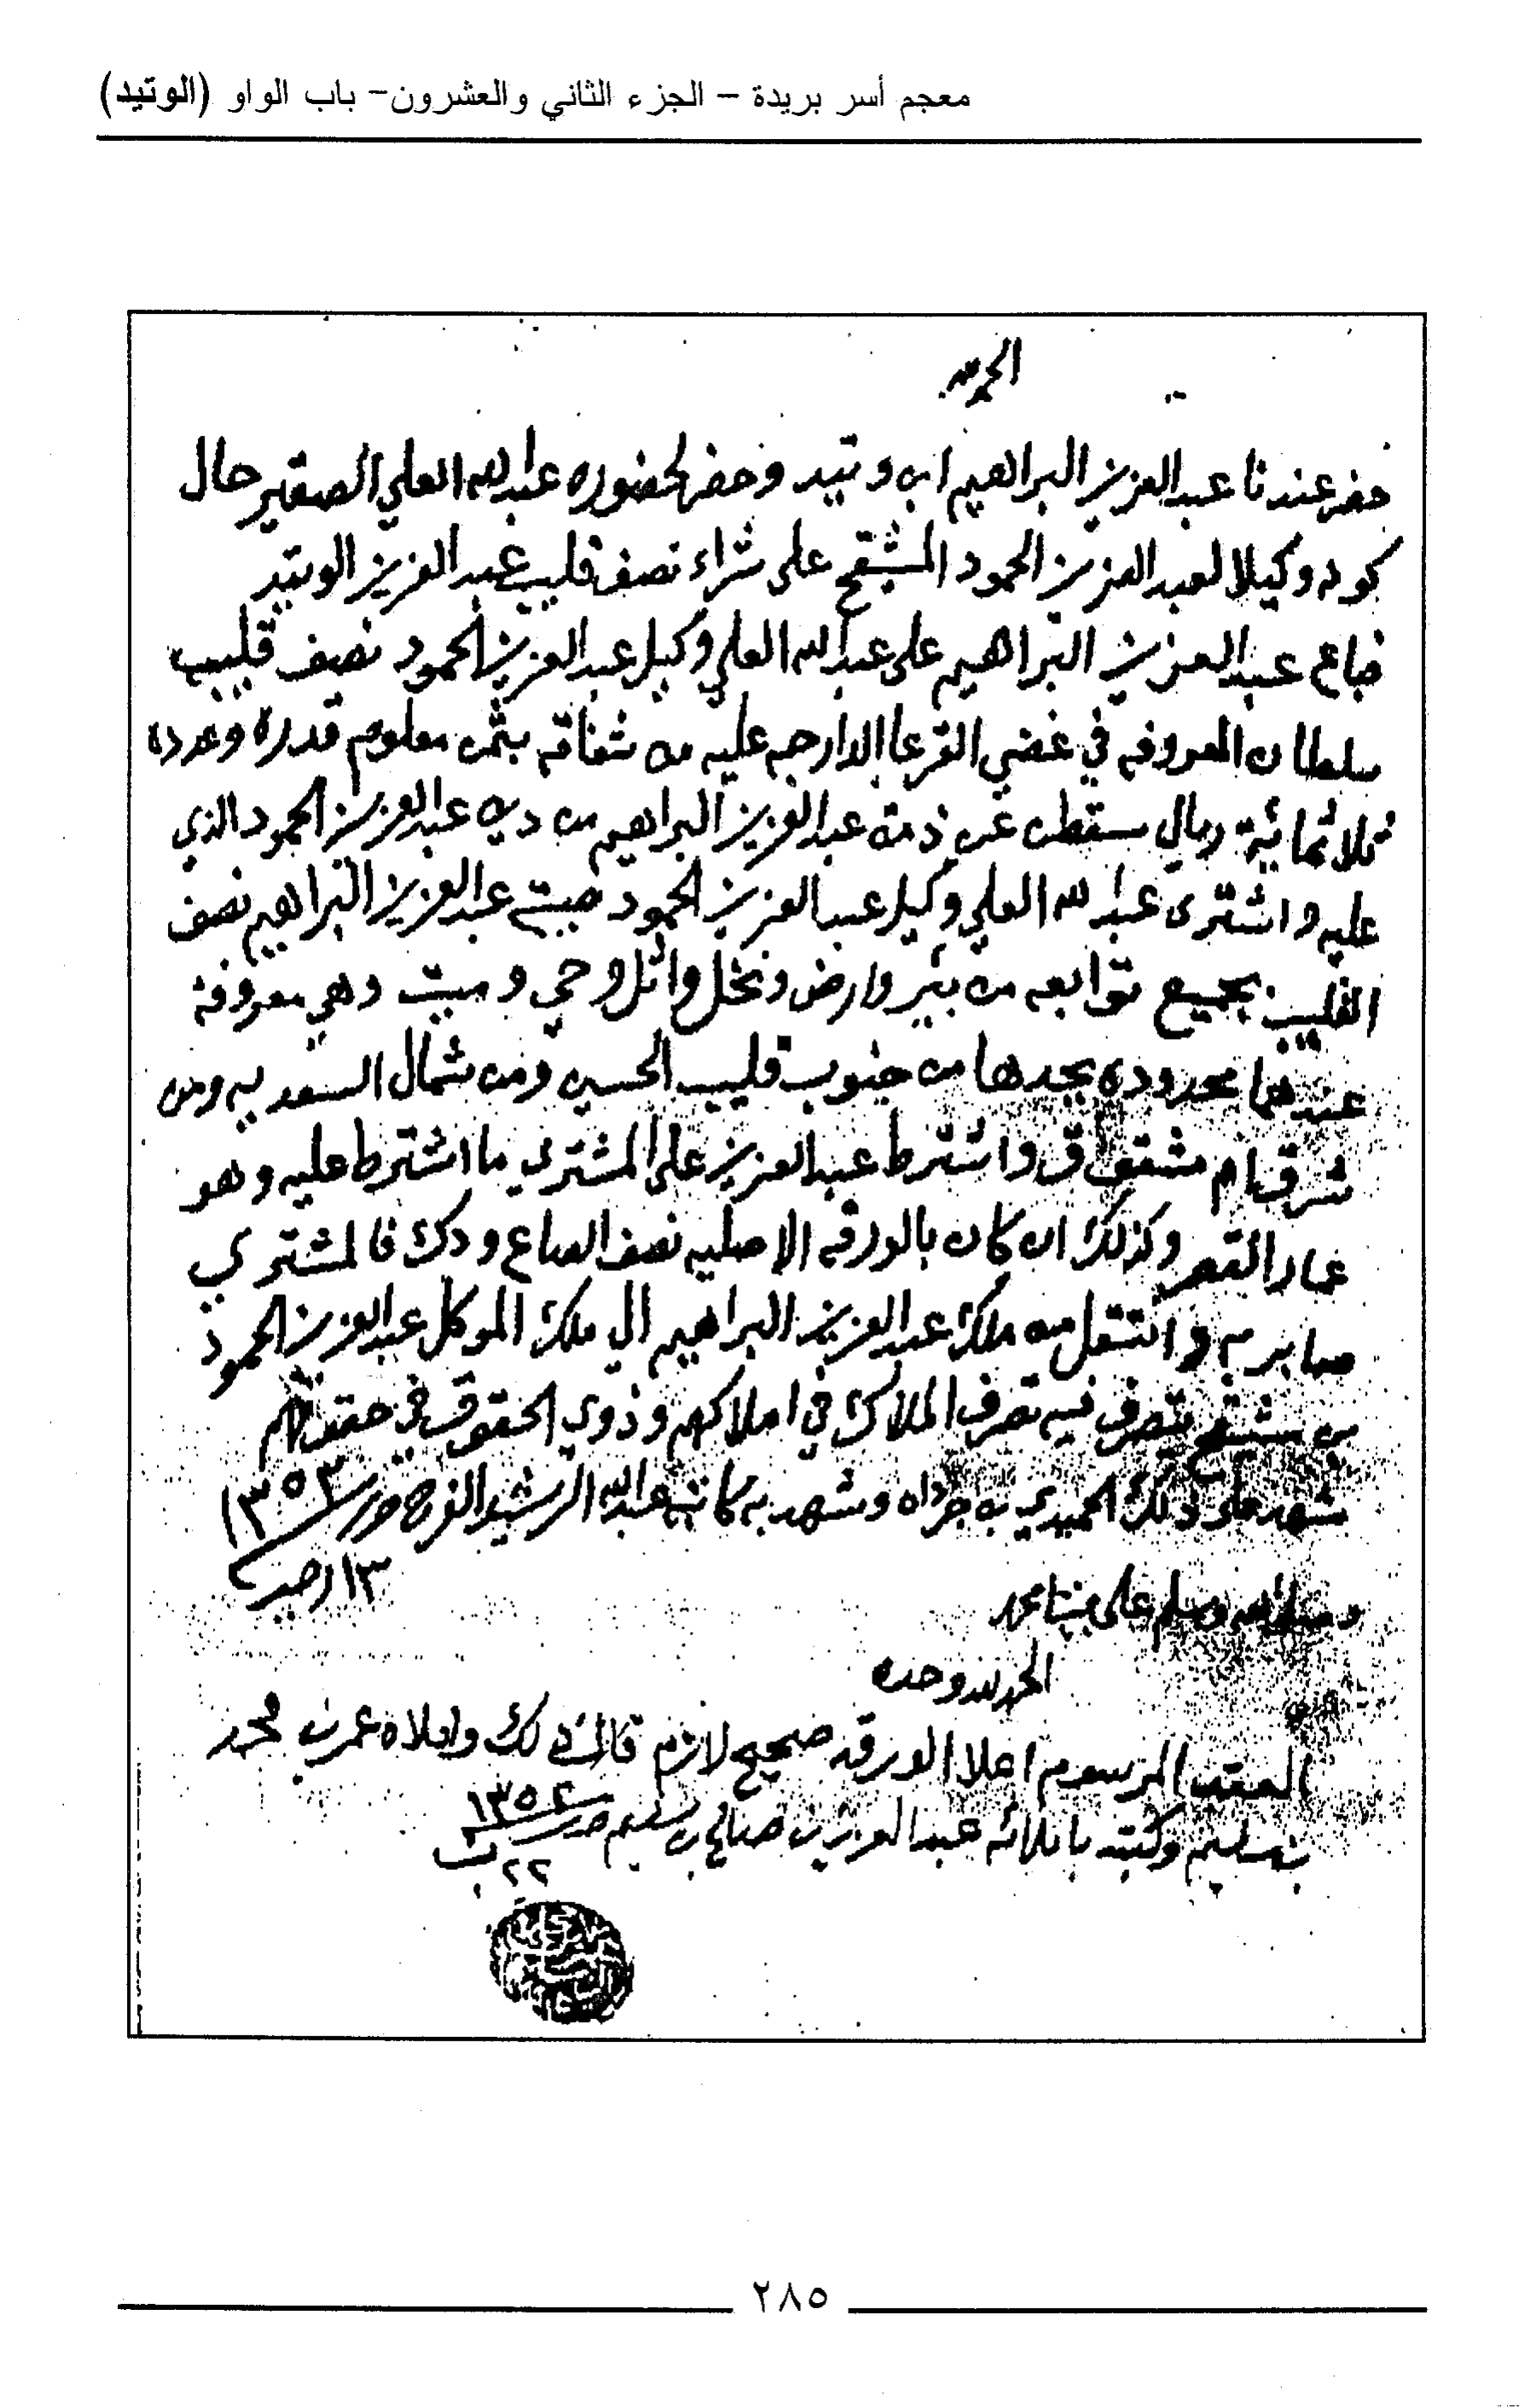 معجم أسر بريدة – الجزء الثاني والعشرون– باب الواو (الوتيد)
الحمد لله
حضر عندنا عبد العزيز البراهيم ابن وتيد وحضر لحضوره عبد الله العلي الصقير حال
كونه وكيلا لعبد العزيز الحمود المشيقح على شراء نصف قليب عبد العزيز الوتيد
فباع عبد العزيز البراهيم على عبد الله العلي وكيل عبد العزيز الحمود نصف قليب
سلطان المعروفه في غضي القرعا الدارجه عليه من بثمن معلوم قدره وعدده
ثلاثمائية ريال سقطن عن ذمة عبد العزيز البراهيم من دين عبد العزيز الحمود الذي
عليه واشترى عبد الله العلي وكيل عبد العزيز الحمود عبد العزيز البراهيم نصف
القليب بجميع توابعه من بئر وارض ونخل واثل وحي وميت وهي معروفة
عندهما محدوده يحدها من جنوب قليب الحسين ومن شمال السعديه ومن
شرق ام مشقوق واشترط عبد العزيز على المشتري ما اشترط عليه وهو
عمار القصر وكذلك ان كان بالورقه الاصليه نصف الصاع ودك فالمشتري
صابر به وانتقل من ملك عبد العزيز البراهيم الى ملك الموكل عبد العزيز الحمود
بن مشيقح يتصرف فيه تصرف الملاك في املاكهم وذوي الحقوق في حقوقهم
شهد على ذلك الحميدي بن وشهد به كاتبه عبد الله الرشيد الفرج حرر ١٣٥٣
١٣ رجب
وصلى الله وسلم على نبينا محمد
الحمد لله وحده
العقد المرسوم اعلا الورقه صحيح لازم قال ذلك واملاه عمر بن محمد
بن سليم وكتبه باملائه عبد العزيز بن صالح بن سليم حرر ١٣٥٤
٢٢ ب
٢٨٥